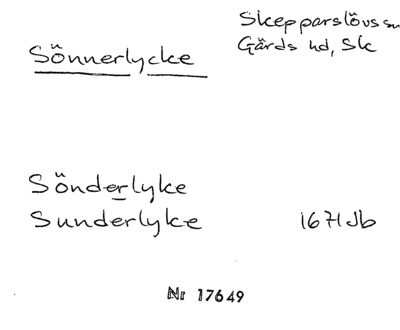 Skepparslövs sn
Gärds hd, Sk
Sönnerlycke
Sönderlyke
Sunderlyke 1671 Jb
Nr 17649